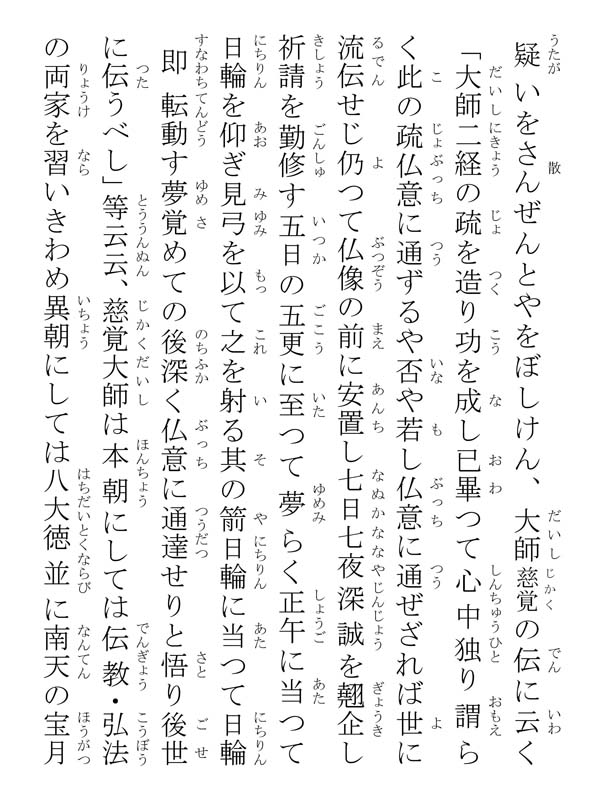 疑いをさんぜんとやをぼしけん、大師慈覚の伝に云く
「大師二経の疏を造り功を成し已畢つて心中独り謂ら
く此の疏仏意に通ずるや否や若し仏意に通ぜざれば世に
流伝せじ仍つて仏像の前に安置し七日七夜深誠を翹企し
祈請を勤修す五日の五更に至つて夢らく正午に当つて
日輪を仰ぎ見弓を以て之を射る其の箭日輪に当つて日輪
即転動す夢覚めての後深く仏意に通達せりと悟り後世
に伝うべし」等云云、慈覚大師は本朝にしては伝教・弘法
の両家を習いきわめ異朝にしては八大徳並に南天の宝月